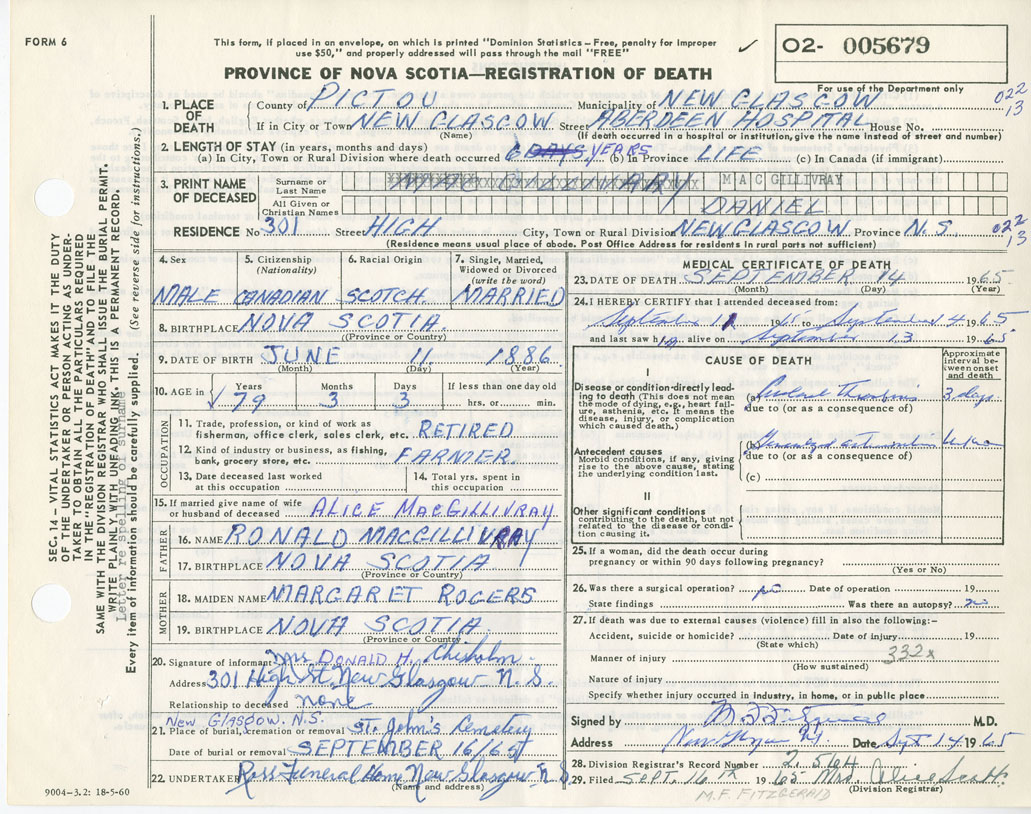 FORM 6
This form, if placed in an envelope, on which is printed "Dominion Statistics—Free, penalty for improper
use $50," and properly addressed will pass through the mail "FREE"
✓
O2- 005679
For use of the Department only
PROVINCE OF NOVA SCOTIA—REGISTRATION OF DEATH
1. PLACE OF DEATH
County of PICTOU Municipality of NEW GLASGOW
022 13
If in City or Town NEW GLASGOW Street ABERDEEN HOSPITAL House No.
(Name) (If death occurred in a hospital or institution, give the name instead of street and number)
2. LENGTH OF STAY (in years, months and days)
(a) In City, Town or Rural Division where death occurred 6 DAYS YEARS (b) In Province LIFE (c) In Canada (if immigrant)
3. PRINT NAME OF DECEASED
Surname or Last Name MACGILLIVRAY
All Given or Christian Names DANIEL
RESIDENCE No 301 Street HIGH City, Town or Rural Division NEW GLASGOW Province N.S. 022 13
(Residence means usual place of abode. Post Office Address for residents in rural parts not sufficient)
4. Sex
MALE
5. Citizenship (Nationality)
CANADIAN
6. Racial Origin
SCOTCH.
7. Single, Married, Widowed or Divorced (write the word)
MARRIED
8. BIRTHPLACE NOVA SCOTIA.
(Province or Country)
9. DATE OF BIRTH JUNE 11 1886
(Month) (Day) (Year)
10. AGE in
Years Months Days If less than one day old
√ 79 3 3 hrs. or min.
OCCUPATION
11. Trade, profession, or kind of work as
fisherman, office clerk, sales clerk, etc. RETIRED
12. Kind of industry or business, as fishing,
bank, grocery store, etc. FARMER.
13. Date deceased last worked at this occupation
14. Total yrs. spent in this occupation
15. If married give name of wife
or husband of deceased ALICE MACGILLIVRAY
FATHER
16. NAME RONALD MACGILLIVRAY
17. BIRTHPLACE NOVA SCOTIA
(Province or Country)
MOTHER
18. MAIDEN NAME MARGARET ROGERS
19. BIRTHPLACE NOVA SCOTIA
(Province or Country)
20. Signature of informant Mrs DONALD H. Chisholm
Address 301 High St. New Glasgow N.S.
Relationship to deceased none
New Glasgow. N.S.
21. Place of burial, cremation or removal St. John's Cemetery
Date of burial or removal SEPTEMBER 16/65
22. UNDERTAKER Ross Funeral Home New Glasgow N.S.
(Name and address)
9004-3.2: 18-5-60
MEDICAL CERTIFICATE OF DEATH
23. DATE OF DEATH SEPTEMBER 14 1965
(Month) (Day) (Year)
24. I HEREBY CERTIFY that I attended deceased from:
September 11 1965 to September 4 1965
and last saw h alive on September 13 1965
CAUSE OF DEATH
Approximate interval between onset and death
I
Disease or condition directly leading to death (This does not mean the mode of dying, e.g., heart failure, asthenia, etc. It means the disease, injury, or complication which caused death.)
(a) Thrombosis 3 days
due to (or as a consequence of)
Antecedent causes
Morbid condition, if any, giving rise to the above cause, stating the underlying condition last.
(b) Generalized
due to (or as a consequence of)
(c)
II
Other significant conditions
contributing to the death, but not related to the disease or condition causing it.
25. If a woman, did the death occur during
pregnancy or within 90 days following pregnancy?
(Yes or No)
26. Was there a surgical operation? no Date of operation 19
State findings Was there an autopsy? no
27. If death was due to external causes (violence) fill in also the following:-
Accident, suicide or homicide? Date of injury 19
(State which)
332x
Manner of injury
(How sustained)
Nature of injury
Specify whether injury occurred in industry, in home, or in public place
Signed by M.D.
Address New Glasgow Date Sept 14 1965
28. Division Registrar's Record Number 2564
29. Filed SEPT. 16TH 1965 Mrs. Alice Scott
(Division Registrar)
M.F. FITZGERALD
SEC. 14 - VITAL STATISTICS ACT MAKES IT THE DUTY
OF THE UNDERTAKER OR PERSON ACTING AS UNDER-
TAKER TO OBTAIN ALL THE PARTICULARS REQUIRED
IN THE "REGISTRATION OF DEATH" AND TO FILE THE
SAME WITH THE DIVISION REGISTRAR WHO SHALL ISSUE THE BURIAL PERMIT.
WRITE PLAINLY WITH UNFADING INK. THIS IS A PERMANENT RECORD.
Letter re spelling of surname
Every item of information should be carefully supplied. (See reverse side for instructions.)